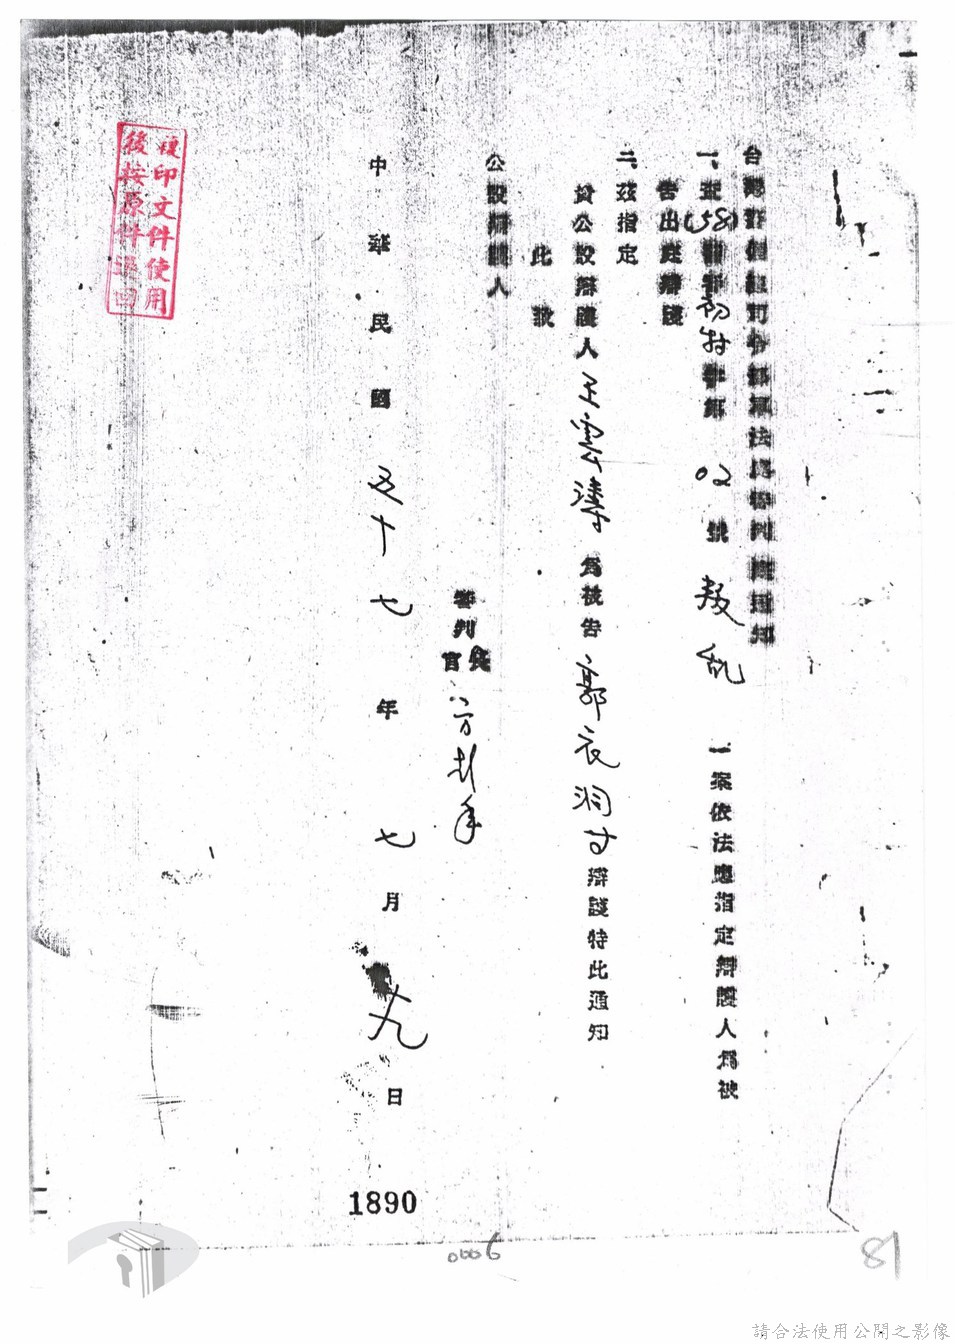 台灣警備總司令部軍法處審判庭通知
一、查(58)初特字第02號叛亂一案依法應指定辯護人為被
告出庭辯護
二、茲指定
貴公設辯護人王雲濤為被告郭衣洞辯護特此通知
此致
公設辯護人
審判長
官
中華民國五十七年七月十九日
複印文件使用
後按原件退回
1890
0006
81
請合法使用公開之影像